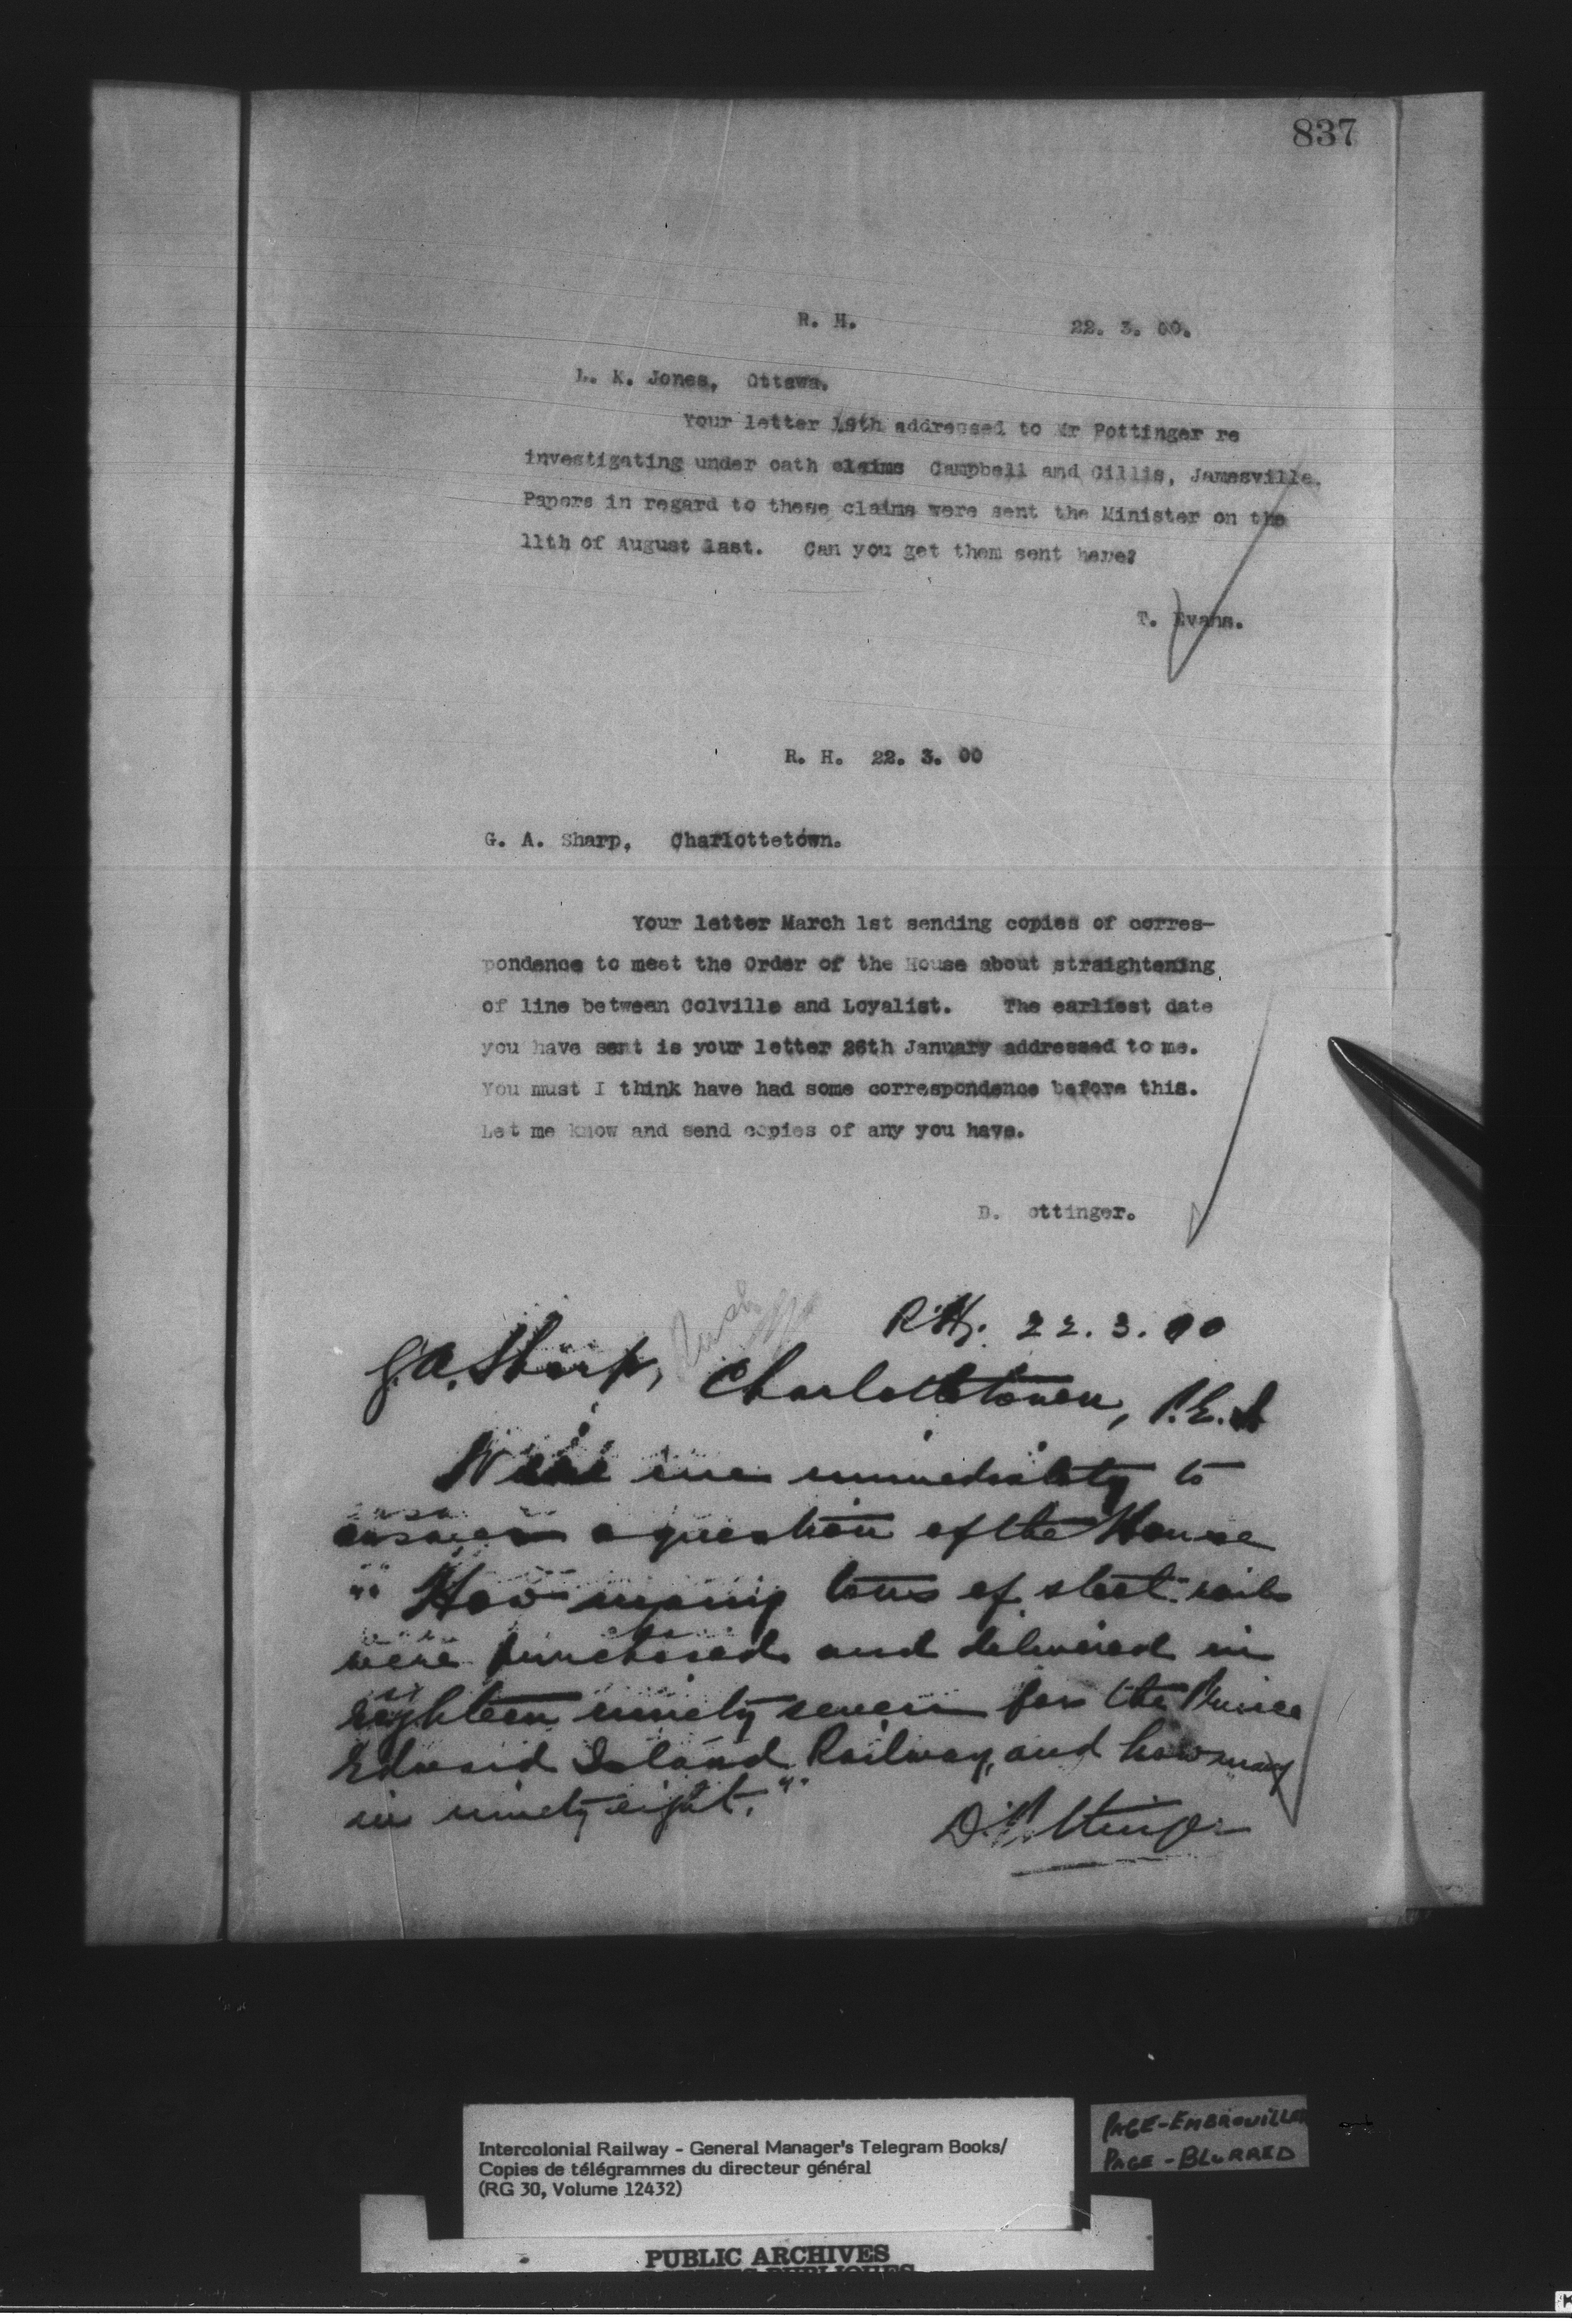 837
R. H. 22. 3. 00.
L. K. Jones, Ottawa.
Your letter 19th addressed to Mr Pottinger re
investigating under oath claims Campbell and Gillis, Jamesville.
Papers in regard to these claims were sent the Minister on the
11th of August last. Can you get them sent here?
T. Evans.
R. H. 22. 3. 00
G. A. Sharp, Charlottetown.
Your letter March 1st sending copies of corres-
pondence to meet the Order of the House about straightening
of line between Colville and Loyalist. The earliest date
you have sent is your letter 26th January addressed to me.
You must I think have had some correspondence before this.
Let me know and send copies of any you have.
D. ottinger.
R.H. 22.3.00
G.A. Sharp, Charlottetown, P.E.I
Wire me immediately to
answer a question of the House
"How many tons of steel rails
were purchased and delivered in
eighteen ninety seven for the Prince
Edward Island Railway, and how many
in ninety eight."
D. Pottinger
Intercolonial Railway - General Manager's Telegram Books/
Copies de télégrammes du directeur général
(RG 30, Volume 12432)
PAGE-EMBROUILLEE
PAGE-BLURRED
PUBLIC ARCHIVES